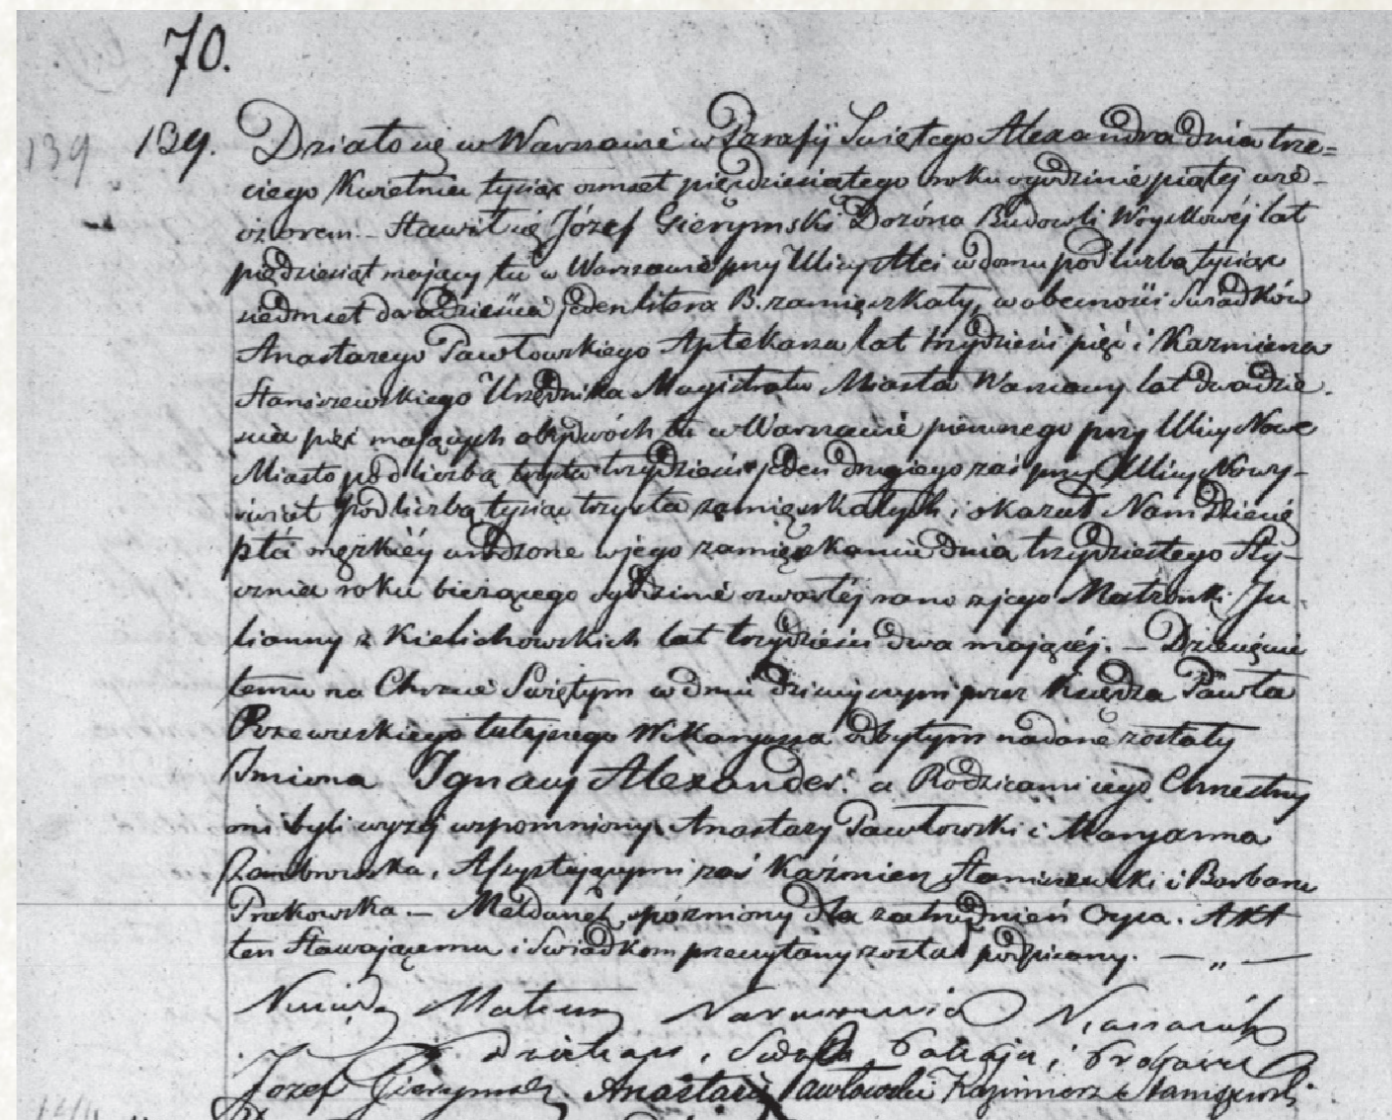 70.
139 139. Działo się w Warszawie w Parafij Świętego Alexandra dnia trze=
ciego Kwietnia tysiąc ośmset pięćdziesiątego roku o godzinie piątej wie-
czorem - Stawił się Józef Gierymski Dozórca Budowli Woyskowéj lat
pięćdziesiąt mający tu w Warszawie przy Ulicy Alei w domu pod liczbą tysiąc
siedmset dwadzieścia jeden litera B. zamięszkały, w obecności Swiadków
Anastazego Pawłowskiego Aptekarza lat trzydzieści pięć i Kazmierza
Staniszewskiego Urzędnika Magistratu Miasta Warszawy lat dwadzie-
ścia pięć mających obydwóch tu w Warszawie pierwszego przy Ulicy Nowe
Miasto pod liczbą trzysta trzydzieści jeden drugiego zaś przy Ulicy Nowy-
świat pod liczbą tysiąc trzysta zamięszkałych, i okazał Nam Dziecię
płci męzkiéy urodzone w jego zamięszkaniu dnia trzydziestego Sty-
cznia roku bieżącego o godzinie czwartéj rano z jego Małzonki Ju-
lianny z Kielichowskich lat trzydzieści dwa mającéj. - Dziecięciu
temu na Chrzcie Świętym w dniu dzisiejszym przez Księdza Pawła
Rzewuskiego tutejszego Wikaryusza odbytym nadane zostały
Imiona Ignacy Alexander. a Rodzicami jego Chrzestny
mi byli wyzéj wspomniony Anastazy Pawłowski i Maryanna
Assystującymi zaś Kaźmierz Staniszewski i Barbara
- Meldunek spóźniony dla zatrudnień Oyca. Akt
ten Stawającemu i Swiadkom przeczytany został podpisany. — „ —
Józef Gierymski. Anastazy Pawłowski Kazimierz Staniszewski